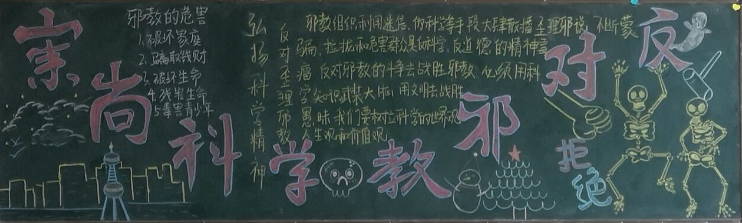 崇尚科学
反对邪教
拒绝
邪教的危害
1.破坏家庭
2.骗取钱财
3.破坏生命
4.残害生命
5.毒害青少年
弘扬科学精神
反对歪理邪教
邪教组织利用迷信、伪科学等手段大肆散播歪理邪说，不断蒙
骗、拉拢和危害群众是反科学、反道德的精神毒
瘤 反对邪教的斗争去战胜邪教 必须用科
学知识武装大脑 用文明去战胜
愚昧 我们要树立科学的世界观
人生观和价值观